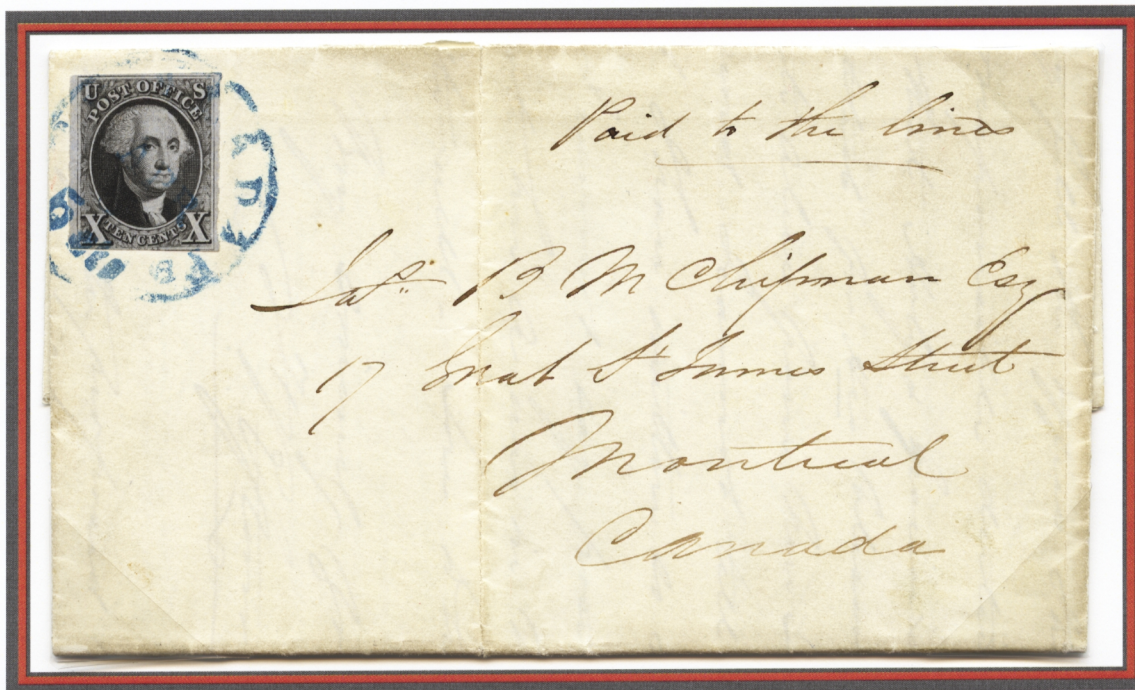 U S
POST OFFICE
X TEN CENTS X
Paid to the lines
B M Chipman Esq
17 Great St James Street
Montreal
Canada